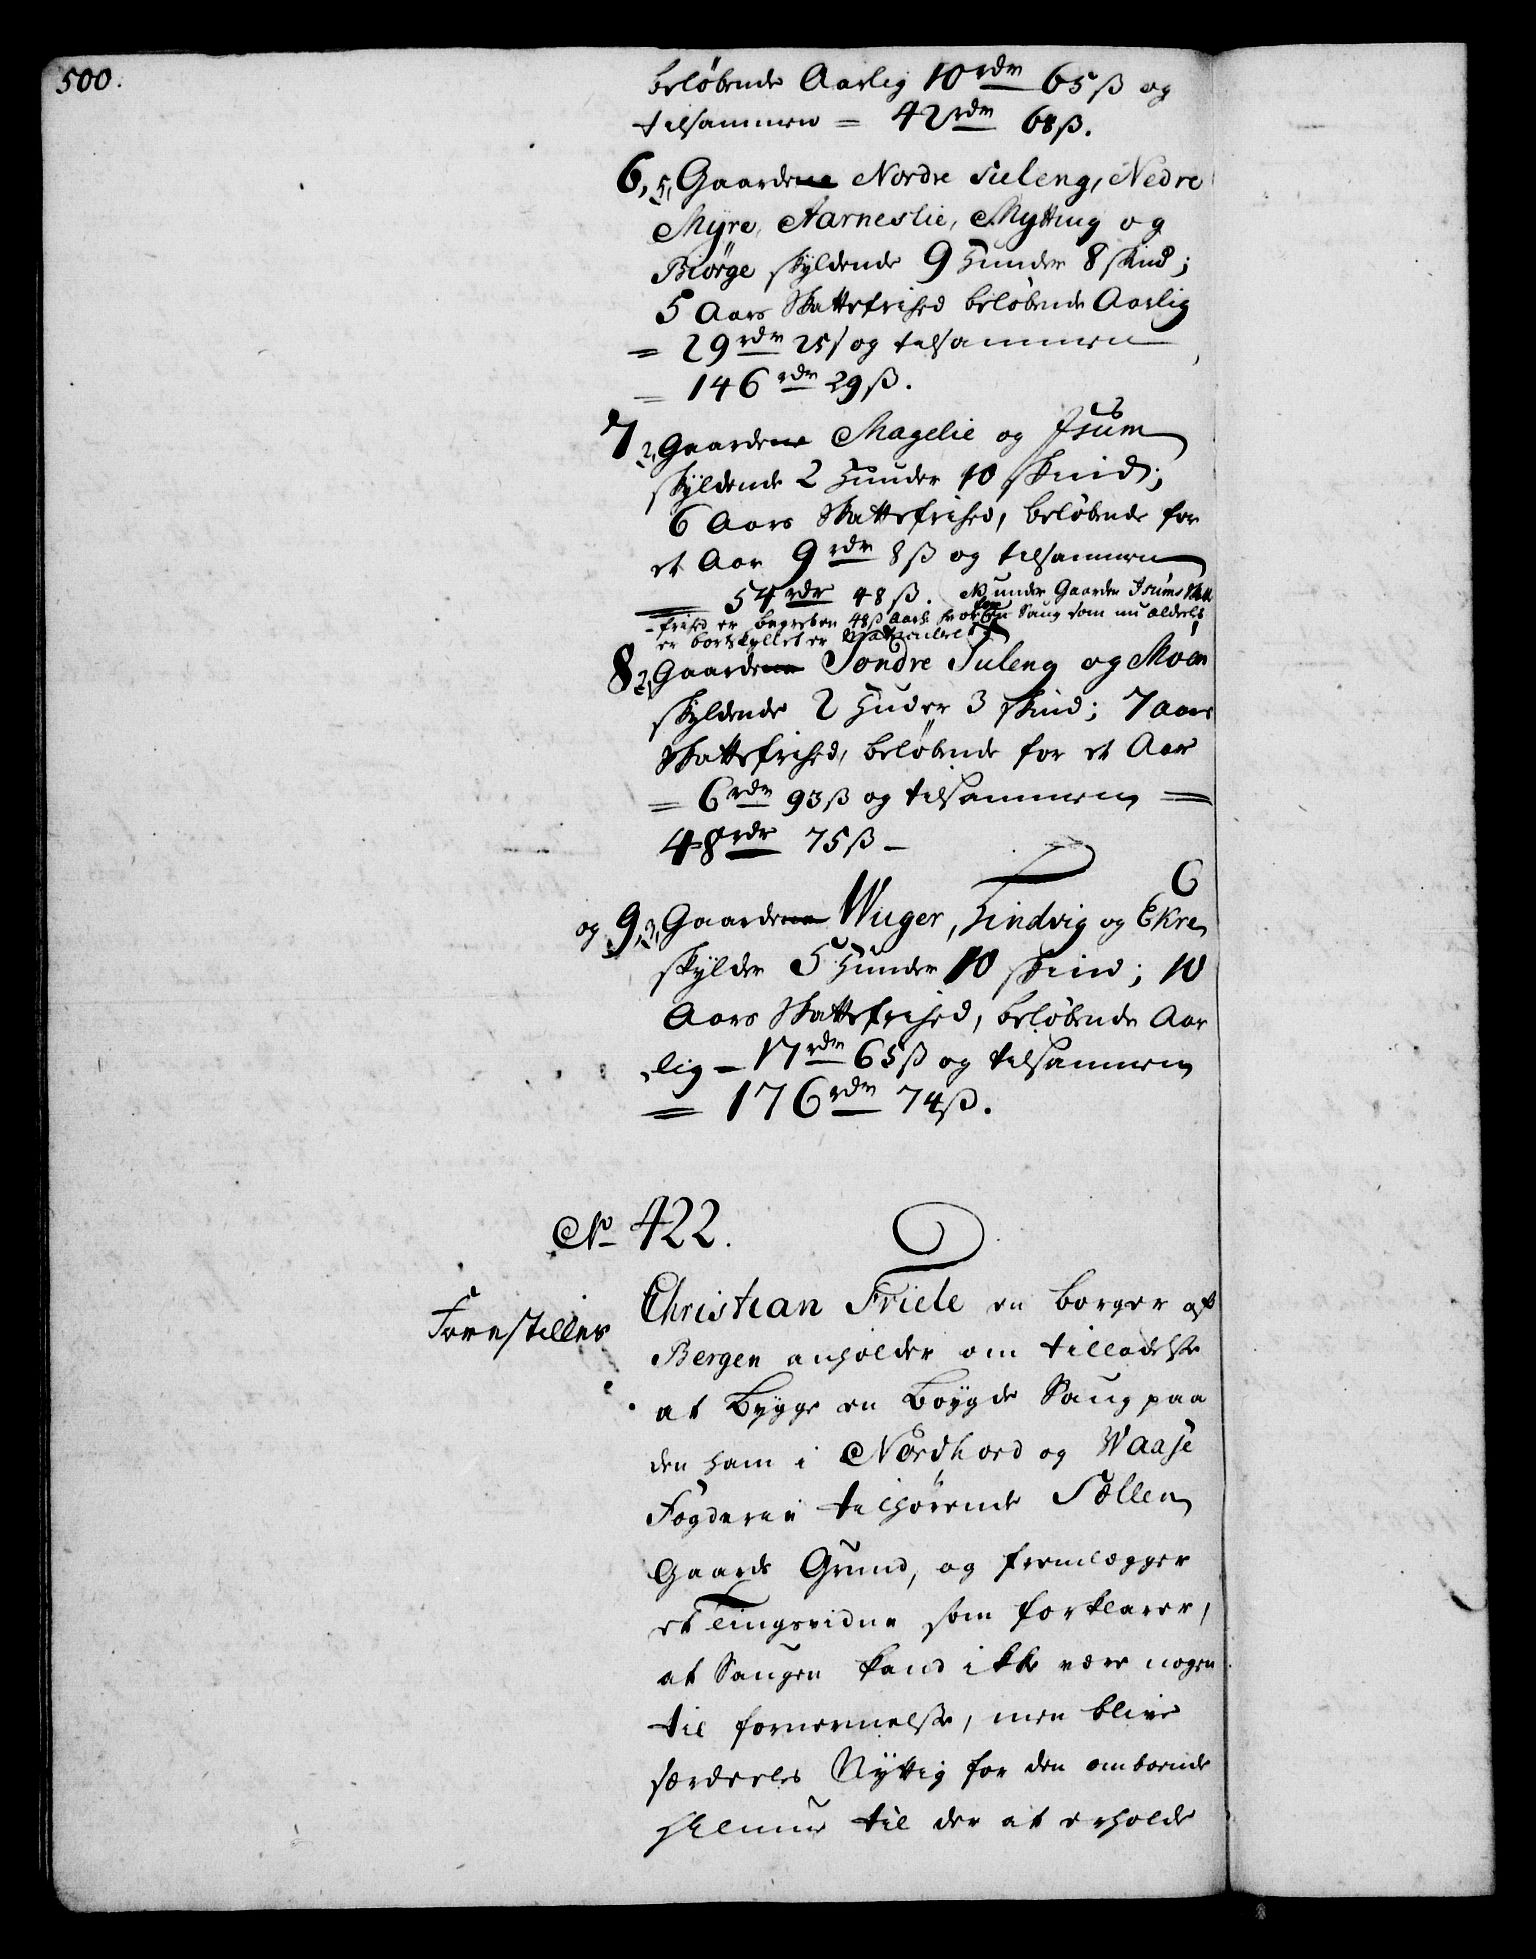 500.
beløbende Aarlig 10 rdr 65 ß og
tilsammen = 42 rdr 68 ß.
6, 5, Gaardene Nordre Suleng, Nedre
Myre, Aarneslie, Mytting og
Biørge skyldende 9 Hunder 8 skind;
5 Aars Skattefrihed beløbende Aarlig
= 29 rdr 25 ß og tilsammen
= 146 rdr 29 ß.
7 2, Gaardene Magelie og Isum
skyldende 2 Hunder 10 skind;
6 Aars Skattefrihed, beløbende for
et Aar 9 rdr 8 ß og tilsammen
= 54 rdr 48 ß. NB under Gaarden Isums Skatte
frihed er begreben 48 ß aarl: for en Saug som nu aldeles
er bortskyllet
8 2, Gaardene Søndre Suleng og Moen
skyldende 2 Huder 3 skind; 7 aars
Skattefrihed, beløbende for et Aar
= 6 rdr 93 ß og tilsammen =
48 rdr 75 ß
og 9, 3, Gaardene Wuger, Hindvig og Ekre
skylder 5 Hunder 10 skind; 10
Aars Skattefrihed, beløbende Aar
lig - 17 rdr 65 ß og tilsammen
= 176 rdr 74 ß.
No 422.
Forestilles
Christian Friele en borger af
Bergen anholder om tilladelse
at bygge en Bøygde Saug paa
den ham i Nordhord og Waase
Fogderie tilhørende Sællen
Gaards Grund, og fremlægger
et Tingsvidne som forklarer,
at Saugen kand ikke være nogen
til fornermelse, men blive
særdeeles Nyttig for den omboende
Almue til der at erholde